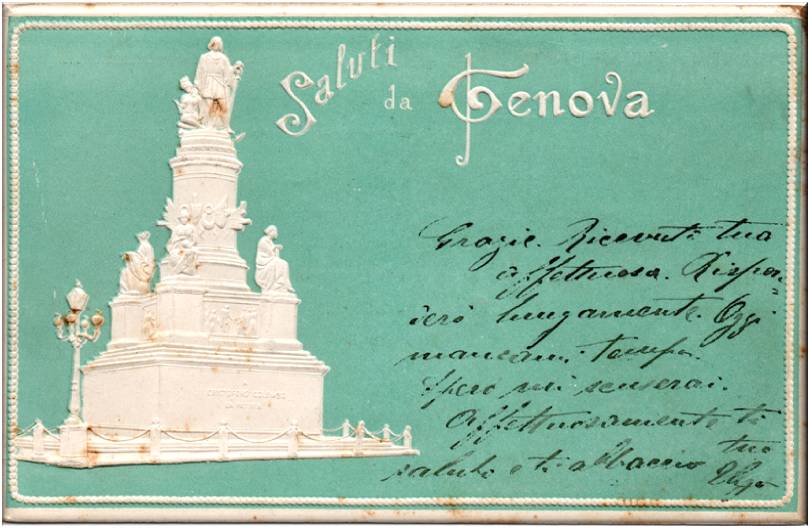 Saluti
da
Genova
Grazie. Ricevuta tua
affettuosa. Rispon=
derò lungamente. Oggi
mancami tempo.
Spero mi scuserai.
Affettuosamente ti
saluto e ti abbraccio tuo
CRISTOFORO COLOMBO
LA PATRIA